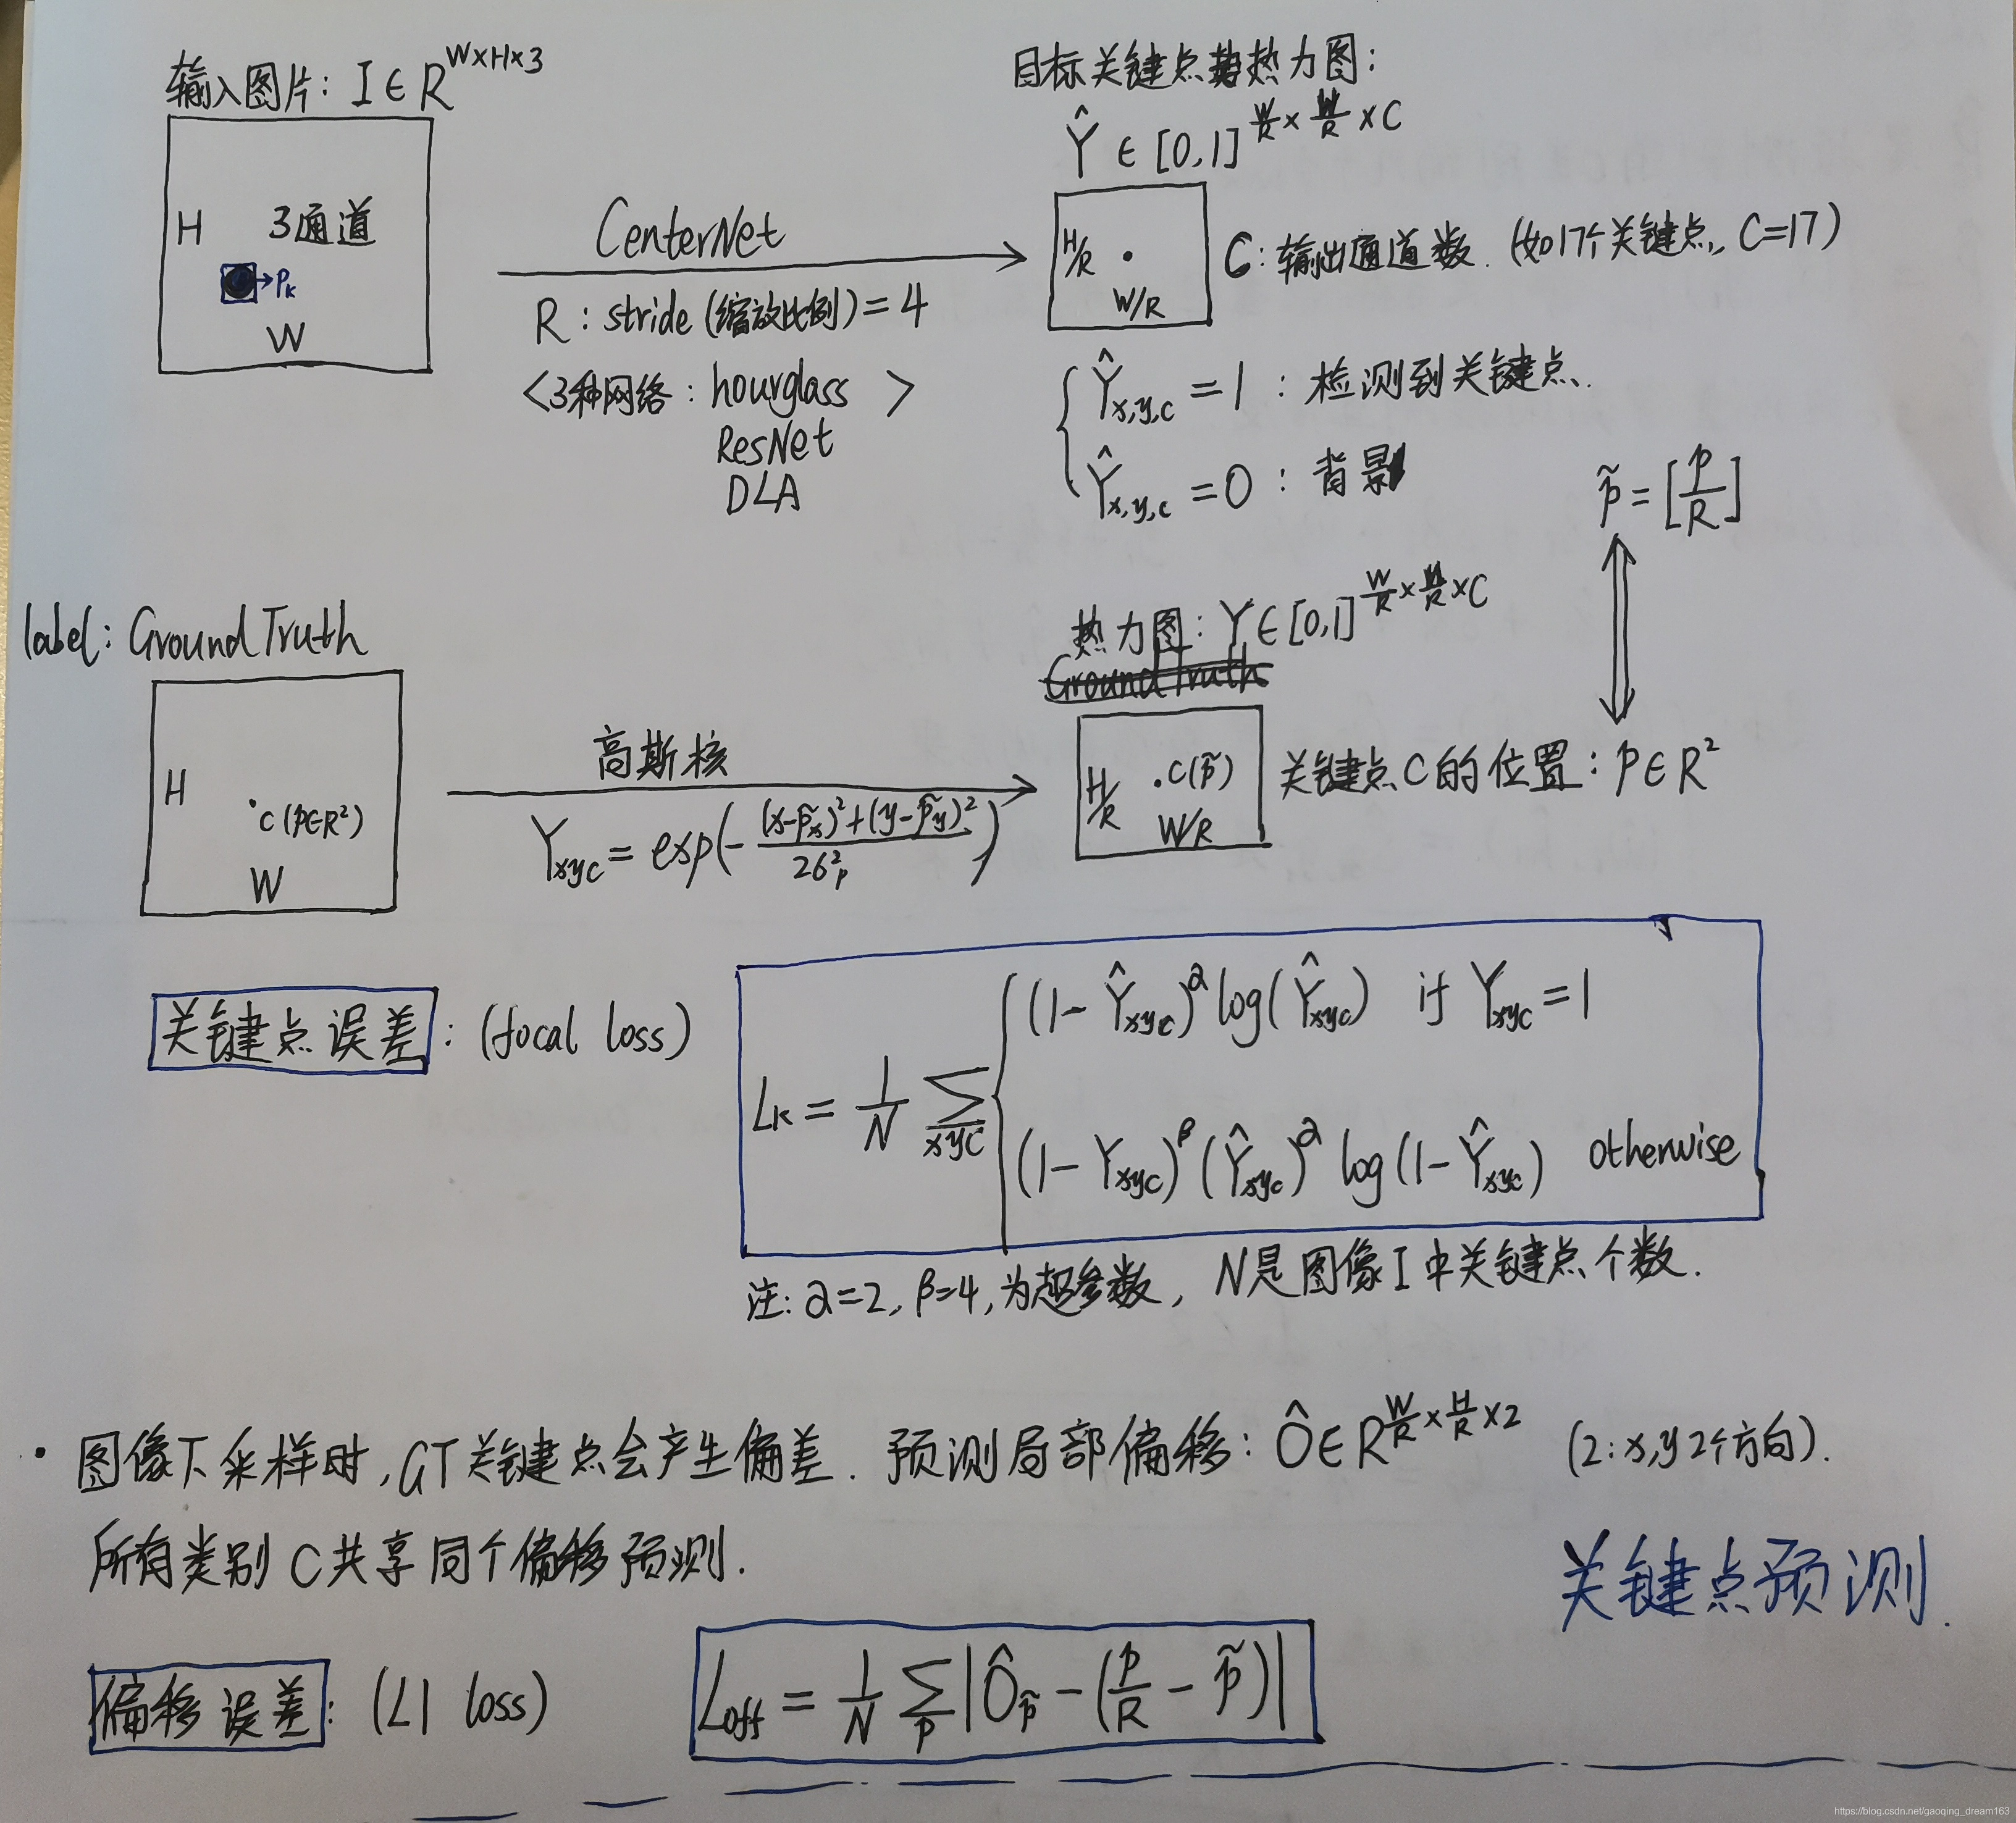 输入图片: I ∈ R^{W×H×3}
H 3通道
→ P_k
W
CenterNet
R: stride (缩放比例) = 4
<3种网络: hourglass >
ResNet
DLA
目标关键点热力图:
Ŷ ∈ [0,1]^{W/R × H/R × C}
H/R
W/R
C: 输出通道数. (如17个关键点, C=17)
Ŷ_{x,y,c} = 1 : 检测到关键点.
Ŷ_{x,y,c} = 0 : 背景
p̃ = [p/R]
label: Ground Truth
H
c (p∈R²)
W
高斯核
Y_{xyc} = exp(- ((x-p̃_x)²+(y-p̃_y)²) / 2σ_p²)
热力图: Y ∈ [0,1]^{W/R × H/R × C}
Ground Truth
H/R .c(p̃)
W/R
关键点C的位置: p∈R²
关键点误差: (focal loss)
L_k = 1/N Σ_{xyc} { (1-Ŷ_{xyc})^α log(Ŷ_{xyc}) if Y_{xyc} = 1
(1-Y_{xyc})^β (Ŷ_{xyc})^α log(1-Ŷ_{xyc}) otherwise
注: α=2, β=4, 为超参数, N是图像I中关键点个数.
· 图像下采样时, GT关键点会产生偏差. 预测局部偏移: Ô∈R^{W/R × H/R × 2} (2: x,y 2个方向).
所有类别C共享同个偏移预测.
关键点预测.
偏移误差: (L1 loss)
L_off = 1/N Σ_p |Ô_p̃ - (p/R - p̃)|
https://blog.csdn.net/gaoqing_dream163